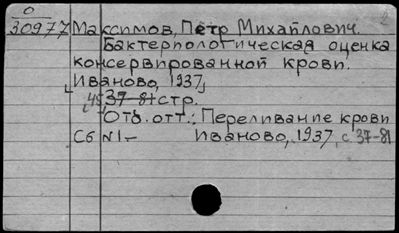 0
30977 Максимов, Петр Михайлович.
Бактериологическая оценка
консервированной крови.
Иваново, 1937
[45] 37-81 стр.
Отд. отт.: Переливание крови
Сб N1- Иваново, 1937, с. 37-81